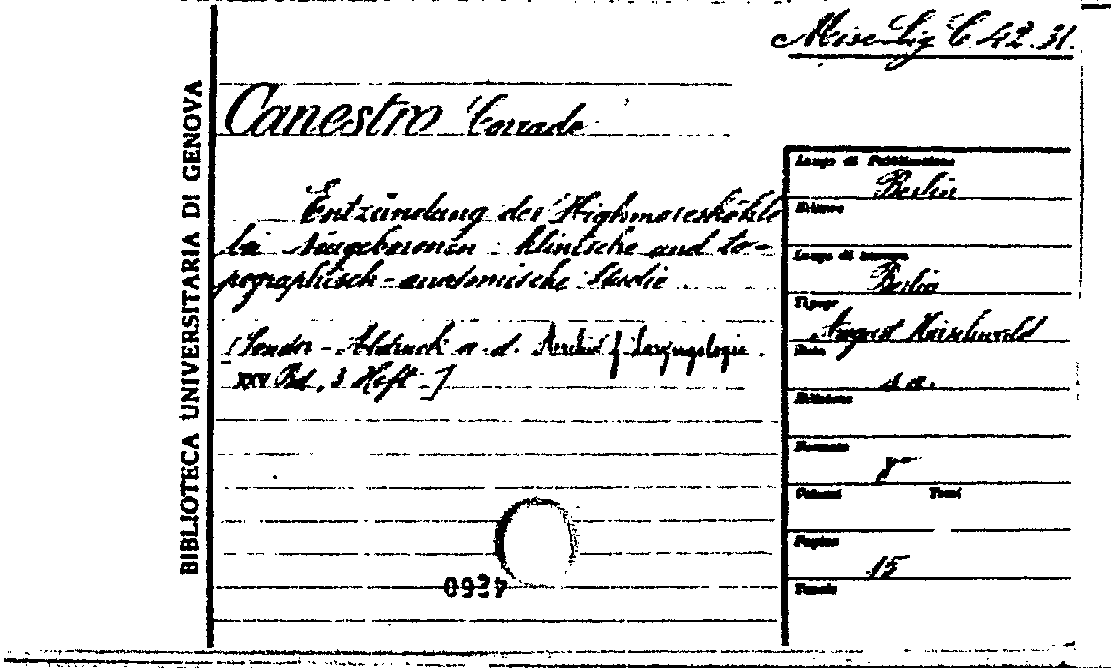 Misc. Lig C 42.31.
BIBLIOTECA UNIVERSITARIA DI GENOVA
Canestro Corrado
Entzündung der Highmoreshöhle
bei Neugeborenen: klinische und to-
pographisch-anatomische Studie.
[Sonder-Abdruck a. d. Archiv f. Laryngologie.
XXV Bd, 3 Heft.]
Luogo di Pubblicazione
Berlin
Editore
Luogo di stampa
Berlin
Tipogr
August Hirschwald
Data
s.a.
Edizione
Formato
8°
Volumi Tomi
Pagine
15
Tavole